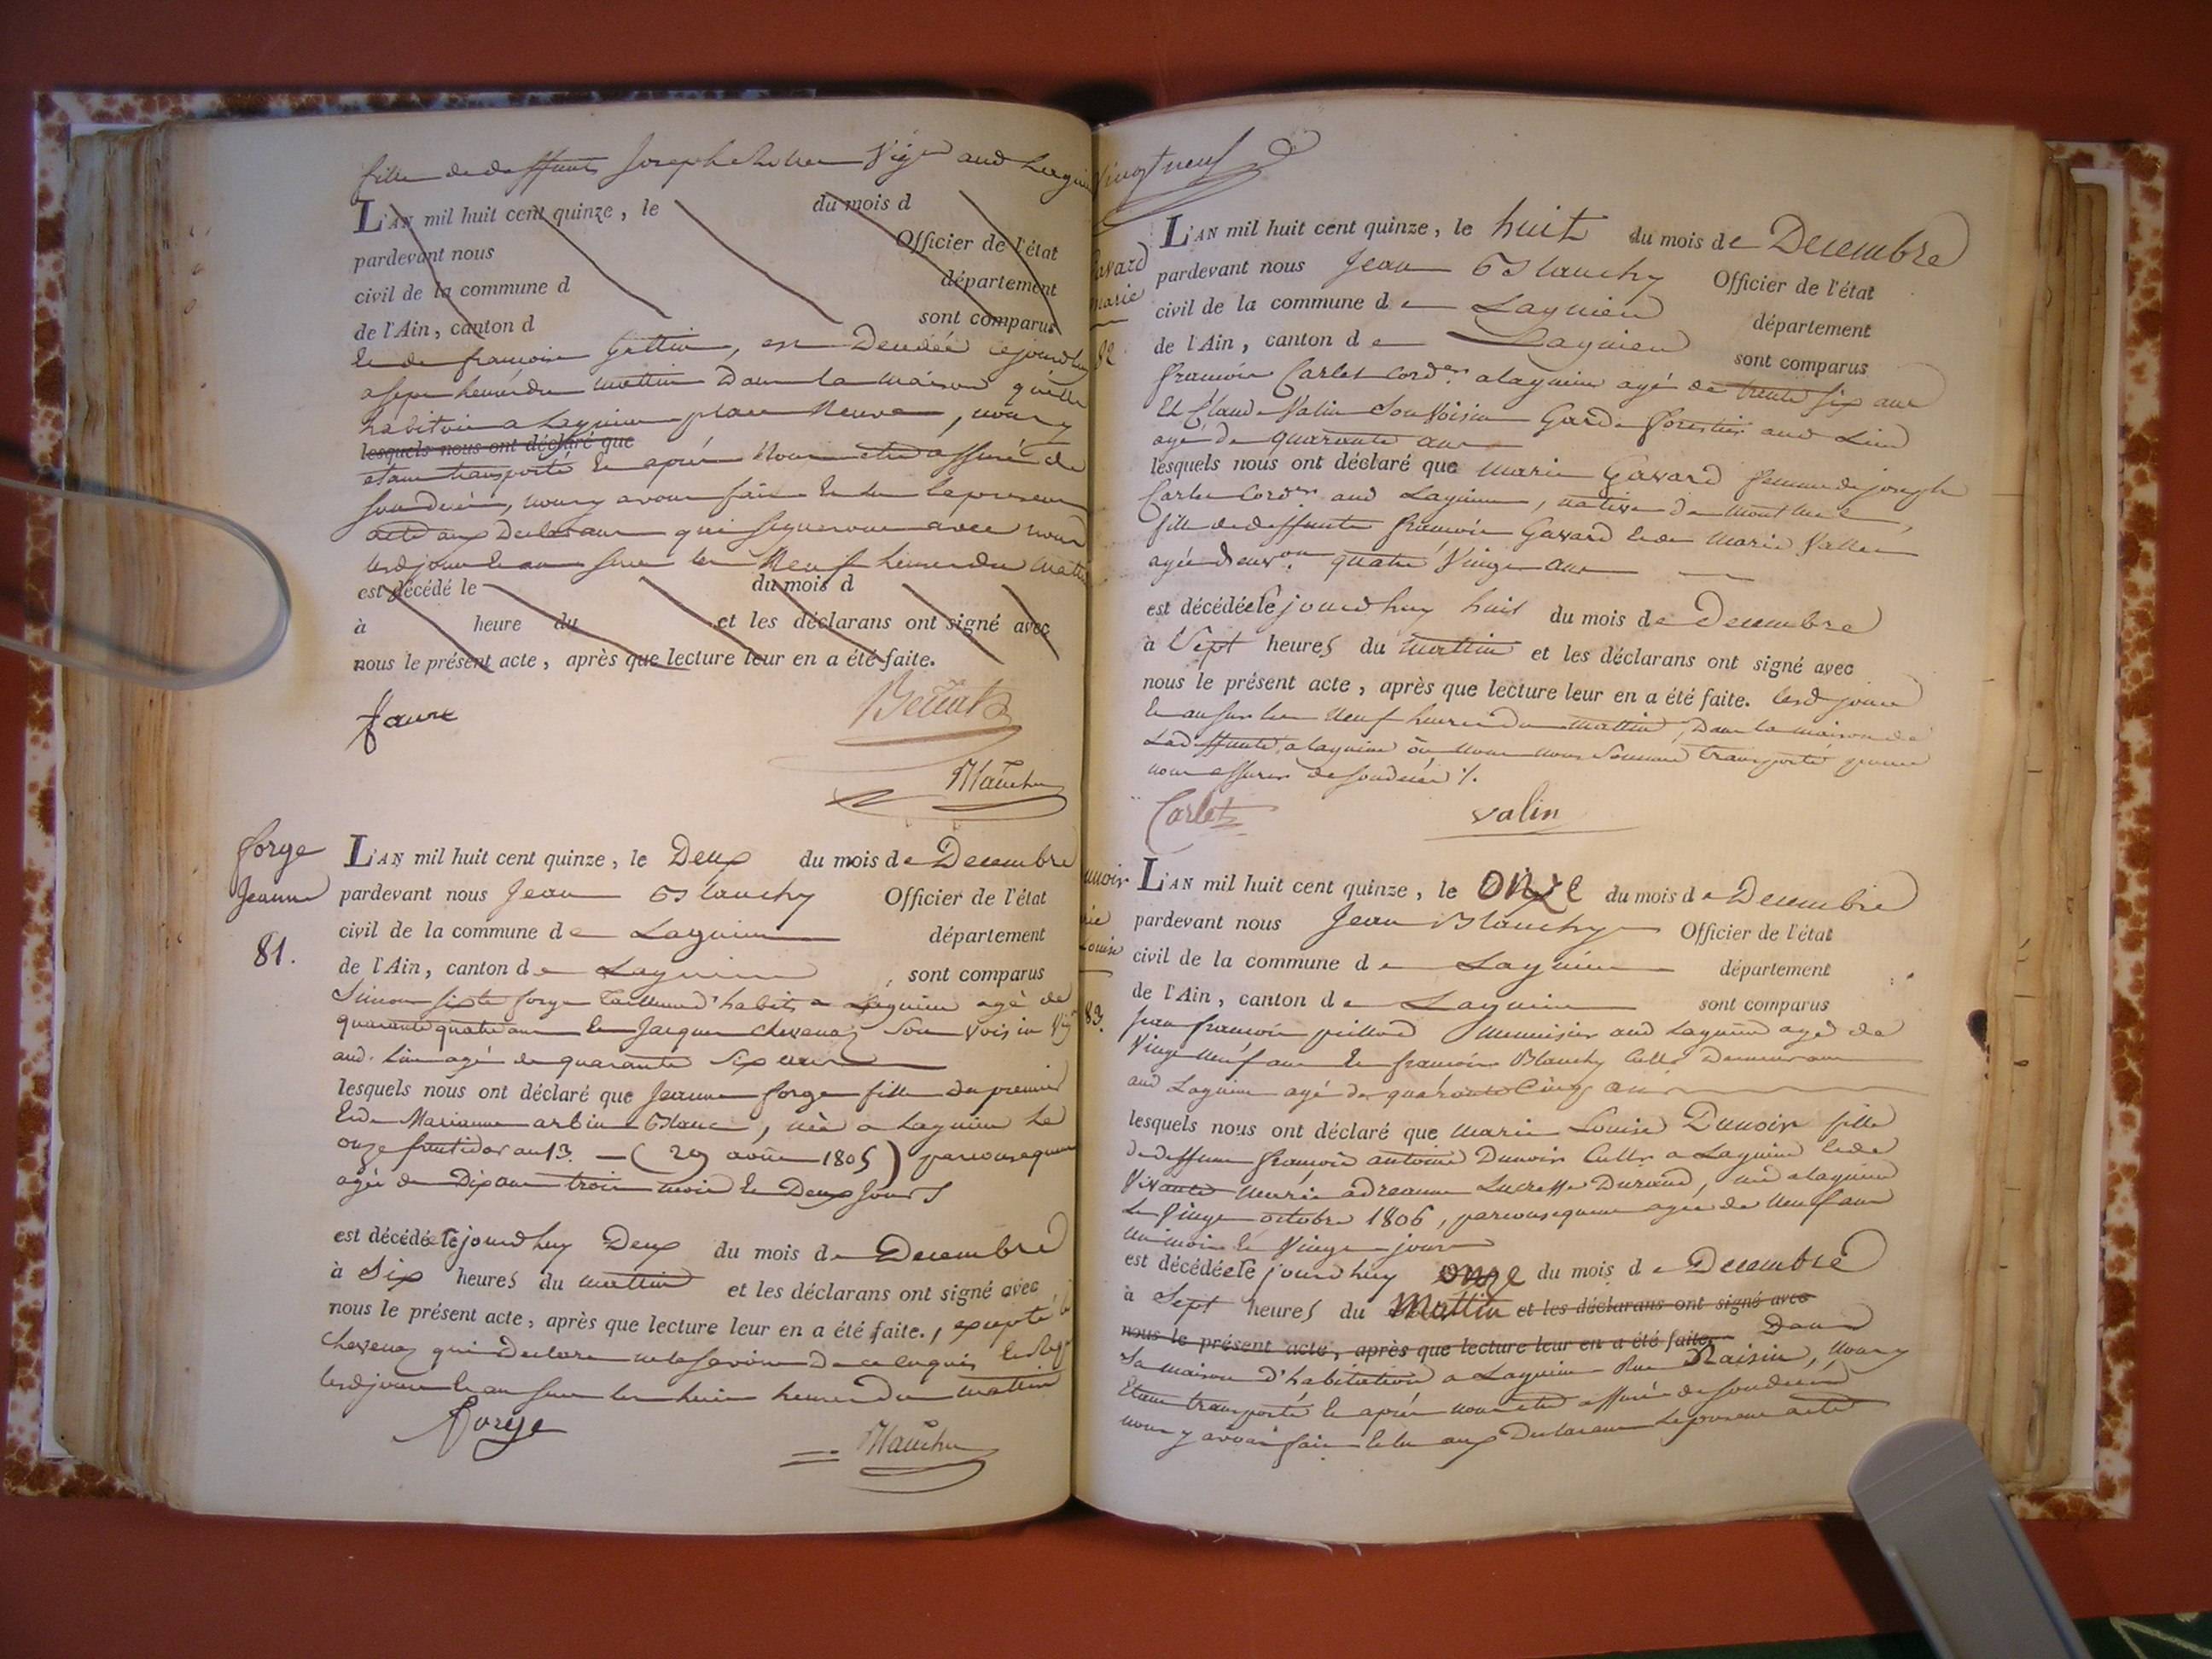 fille de deffunts Joseph Vign and Lagnieu
L'AN mil huit cent quinze, le du mois d
pardevant nous Officier de l'état
civil de la commune d département
de l'Ain, canton d sont comparus
et de françoise Gettin, est Decedée cejourdhuy
a sept heures du mattin Dans la Maison qu'elle
habitoit a Lagnieu place Neuve, nous y
lesquels nous ont déclaré que
étant transporté et après Nous etre assuré de
son decès, nous y avons fait et lu le present
acte aux Declarans qui signeront avec nous
lesd jour et an sur les Neuf heures du mattin
est décédé le du mois d
à heure du et les déclarans ont signé avec
nous le présent acte, après que lecture leur en a été faite.
faure
Blanchy
forge
Jeanne
81.
L'AN mil huit cent quinze, le Deux du mois de Decembre
pardevant nous Jean Blanchy Officier de l'état
civil de la commune de Lagnieu département
de l'Ain, canton de Lagnieu, sont comparus
Simon forge tailleur d'habits a Lagnieu agé de
quarante quatre ans et Jacques Chevenaz son voisin Vign
aud. Lieu agé de quarante Six ans
lesquels nous ont déclaré que Jeanne forge fille du premier
et de Marianne arbin Blanc, née a Lagnieu le
onze fructidor an 13. (29 août 1805) parconsequent
agée de Dix ans trois mois et Deux jours
est décédée cejourdhuy Deux du mois de Decembre
à Six heures du mattin et les déclarans ont signé avec
nous le présent acte, après que lecture leur en a été faite., excepté led
Chevenaz qui a Declaré ne le savoir De ce enquis
lesd jour et an sur les huit heures du mattin
forge
Blanchy
Vingt neuf
Gavard
marie
82
L'AN mil huit cent quinze, le huit du mois de Decembre
pardevant nous Jean Blanchy Officier de l'état
civil de la commune de Lagnieu département
de l'Ain, canton de Lagnieu sont comparus
françois Carlet Corder a lagnieu agé de trente six ans
Et Claude Valin Son Voisin Garde forestier aud Lieu
agé de quarante ans
lesquels nous ont déclaré que Marie Gavard femme de joseph
Carlet Corder aud Lagnieu, native de
fille de deffunts françois Gavard et de Marie Vallet
agée d'env.on quatre Vingt ans
est décédée cejourdhuy huit du mois de Decembre
à Sept heures du mattin et les déclarans ont signé avec
nous le présent acte, après que lecture leur en a été faite. lesd jour
et an sur les Neuf heures du mattin, Dans la maison de
Lad deffunte, a lagnieu où Nous nous Sommes transporté pour
nous assurer de son decès ./.
Carlet
valin
Dunoir
Marie
Louise
83.
L'AN mil huit cent quinze, le onze du mois de Decembre
pardevant nous Jean Blanchy Officier de l'état
civil de la commune de Lagnieu département
de l'Ain, canton de Lagnieu sont comparus
Jean françois peillod Menuisier aud Lagnieu agé de
Vingt Neuf ans et françois Blanchy Cultr Demeurant
aud Lagnieu agé de quarante Cinq ans
lesquels nous ont déclaré que Marie Louise Dunoir fille
De deffunt françois antoine Dunoir Cultr a Lagnieu et de
Vivante Marie adreanne Lucresse Durand, née a lagnieu
Le Vingt octobre 1806, parconsequent agée de Neuf ans
un mois et Vingt jours
est décédée cejourdhuy onze du mois de Decembre
à Sept heures du Mattin et les déclarans ont signé avec
nous le présent acte, après que lecture leur en a été faite. Dans
Sa maison d'habitation a Lagnieu Rue Raisin, Nous y
Etant transporté et après nous etre assuré de son decès
nous y avons fait et lu aux Declarans le present acte